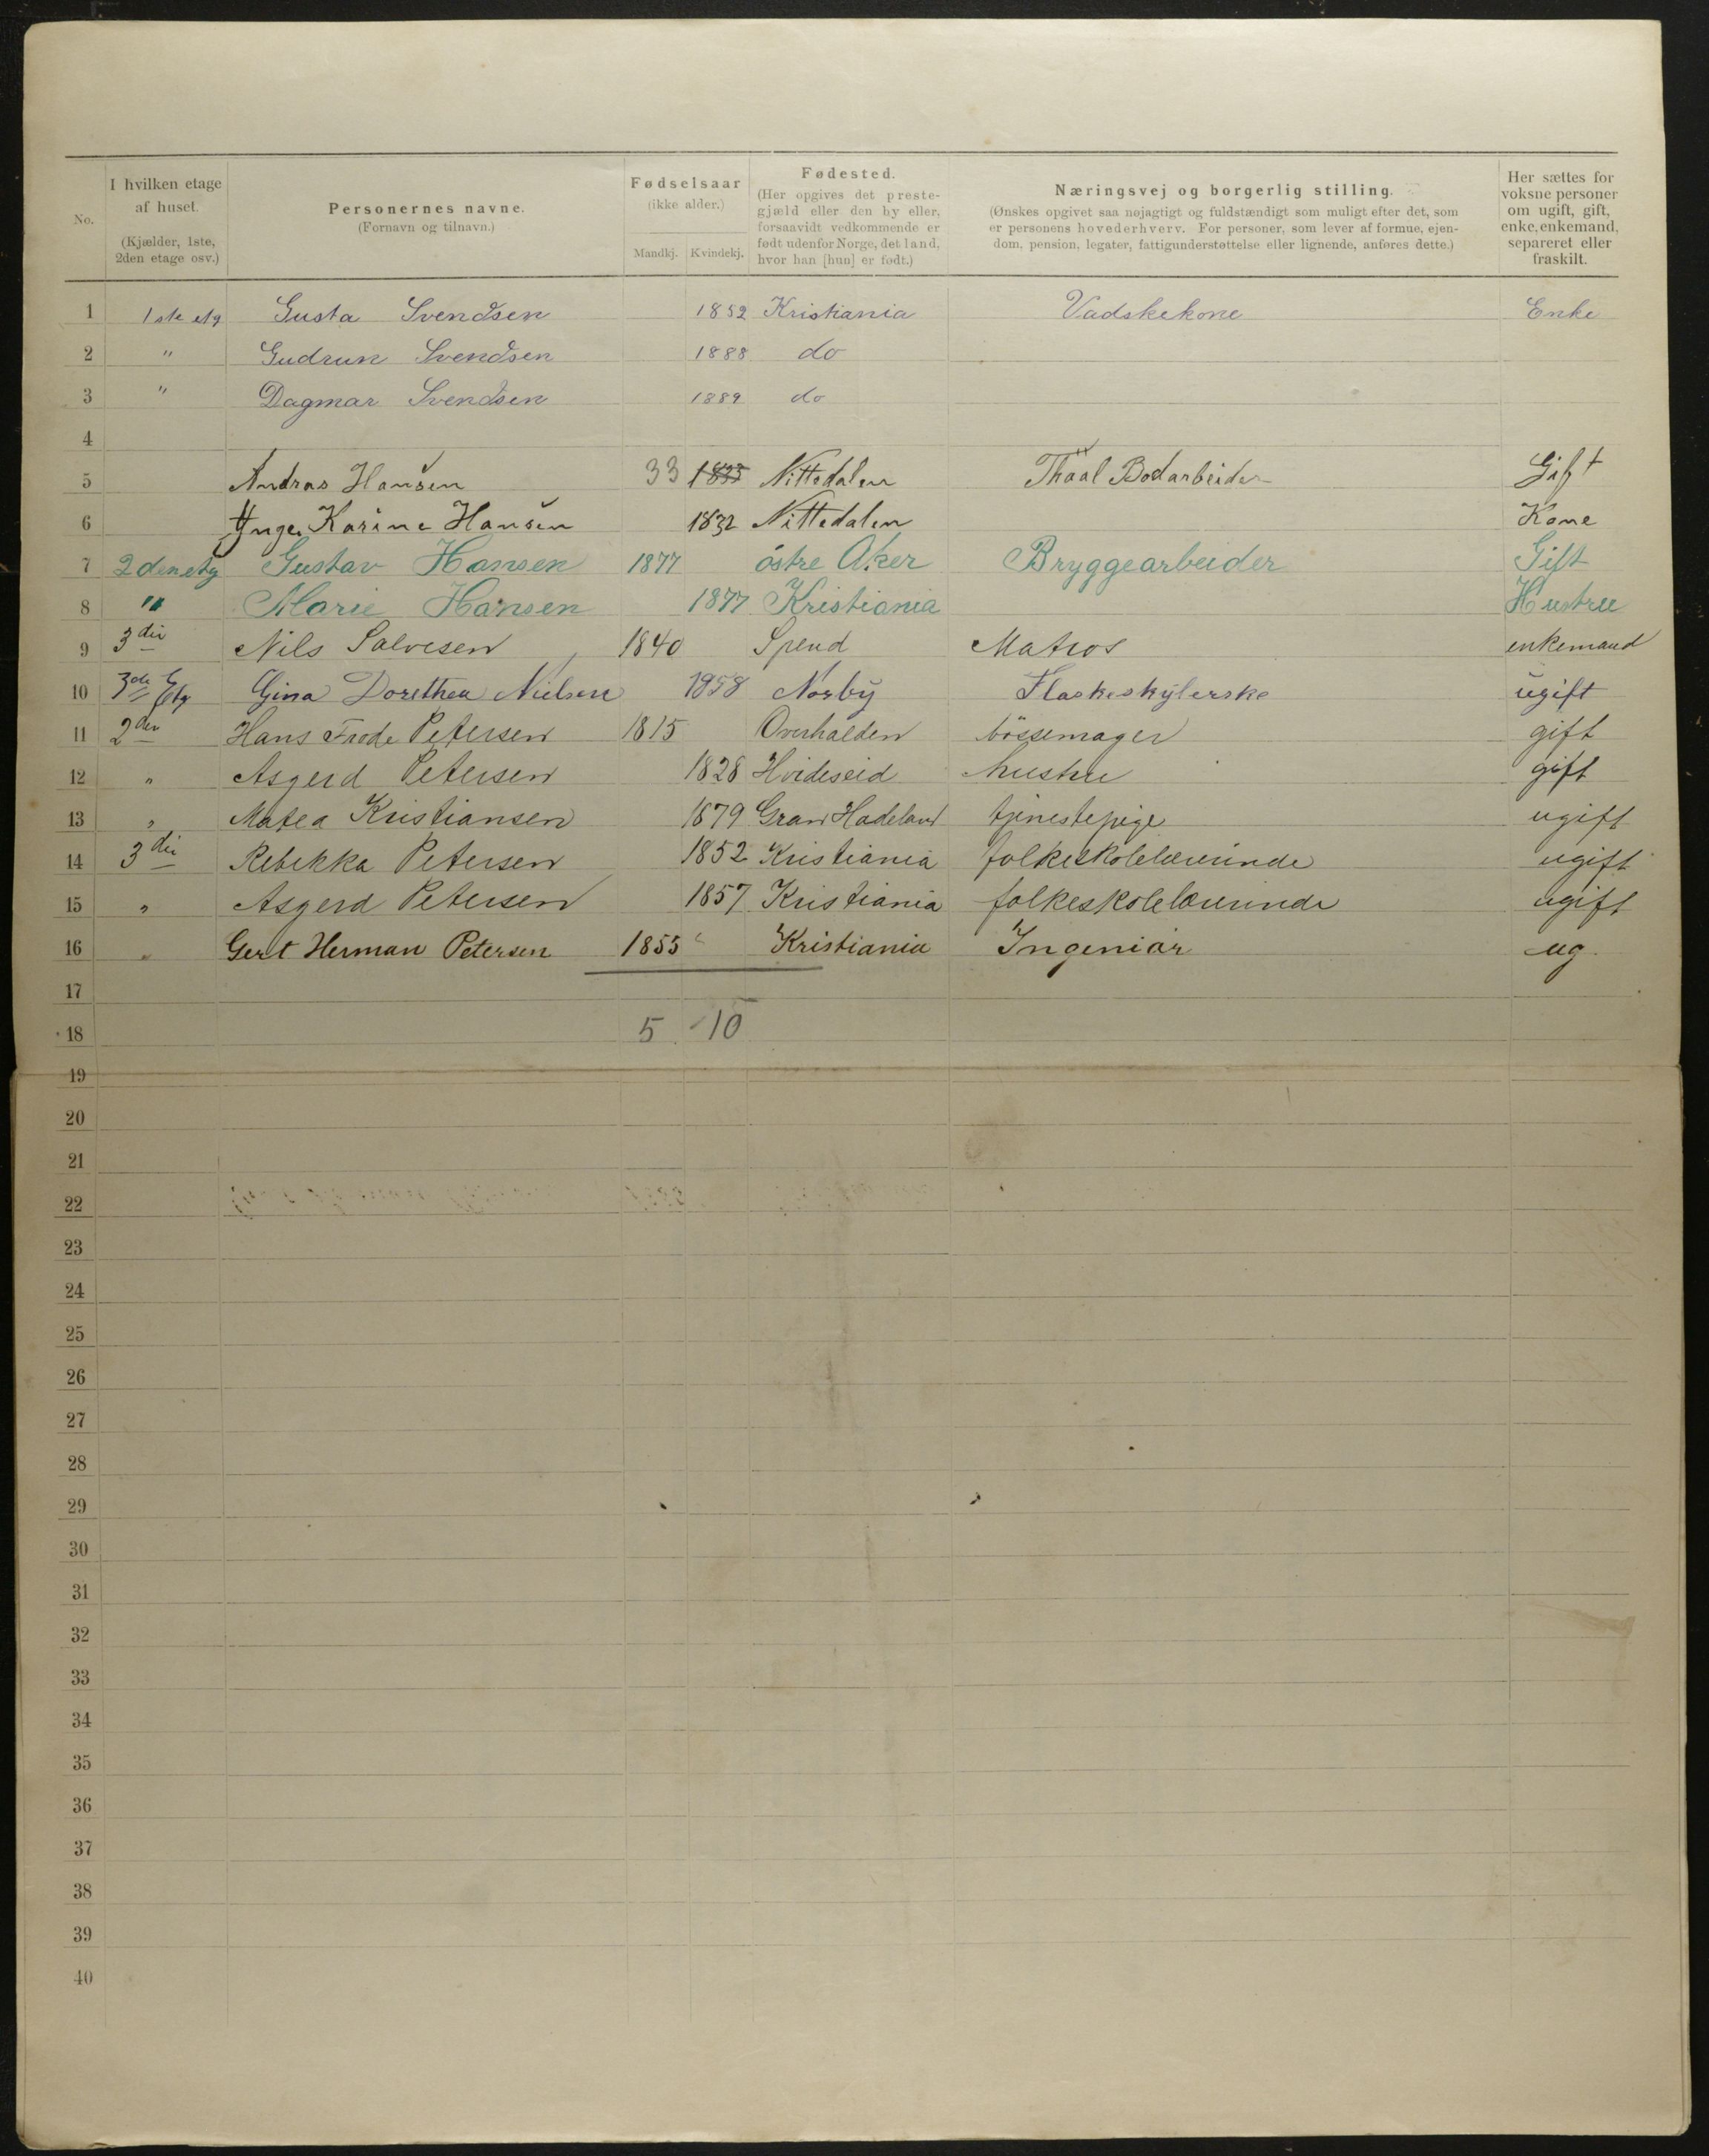 No.
I hvilken etage af huset.
(Kjælder, 1ste, 2den etage osv.)
Personernes navne.
(Fornavn og tilnavn.)
Fødselsaar
(ikke alder.)
Mandkj. Kvindekj.
Fødested.
(Her opgives det preste-
gjæld eller den by eller,
forsaavidt vedkommende er
født udenfor Norge, det land,
hvor han [hun] er født.)
Næringsvej og borgerlig stilling.
(Ønskes opgivet saa nøjagtigt og fuldstændigt som muligt efter det, som
er personens hovederhverv. For personer, som lever af formue, ejen-
dom, pension, legater, fattigunderstøttelse eller lignende, anføres dette.)
Her sættes for
voksne personer
om ugift, gift,
enke, enkemand,
separeret eller
fraskilt.
1 1ste etg Gusta Svendsen 1852 Kristiania Vadskekone Enke
2 " Gudrun Svendsen 1888 do
3 " Dagmar Svendsen 1889 do
4
5 Andras Hansen 33 1833 Nittedalen Thaal Bodarbeider Gift
6 Ynge Karine Hansen 1832 Nittedalen Kone
7 2den etg Gustav Hansen 1877 östre Aker Bryggearbeider Gift
8 " Marie Hansen 1877 Kristiania Hustru
9 3die Nils Salvesen 1840 Matros enkemand
10 3die Etg Gina Dorethea Nielsen 1858 Norby Flaskeskylerske ugift
11 2den Hans Frode Petersen 1815 Overhalden bössemager gift
12 " Asgerd Petersen 1828 Hvideseid hustru gift
13 " Matea Kristiansen 1879 Gran Hadeland tjenestepige ugift
14 3die Rebekka Petersen 1852 Kristiania folkeskolelærerinde ugift
15 " Asgerd Petersen 1857 Kristiania folkeskolelærerinde ugift
16 " Gert Herman Petersen 1855 Kristiania Ingeniør ug.
17
18 5 10
19
20
21
22
23
24
25
26
27
28
29
30
31
32
33
34
35
36
37
38
39
40